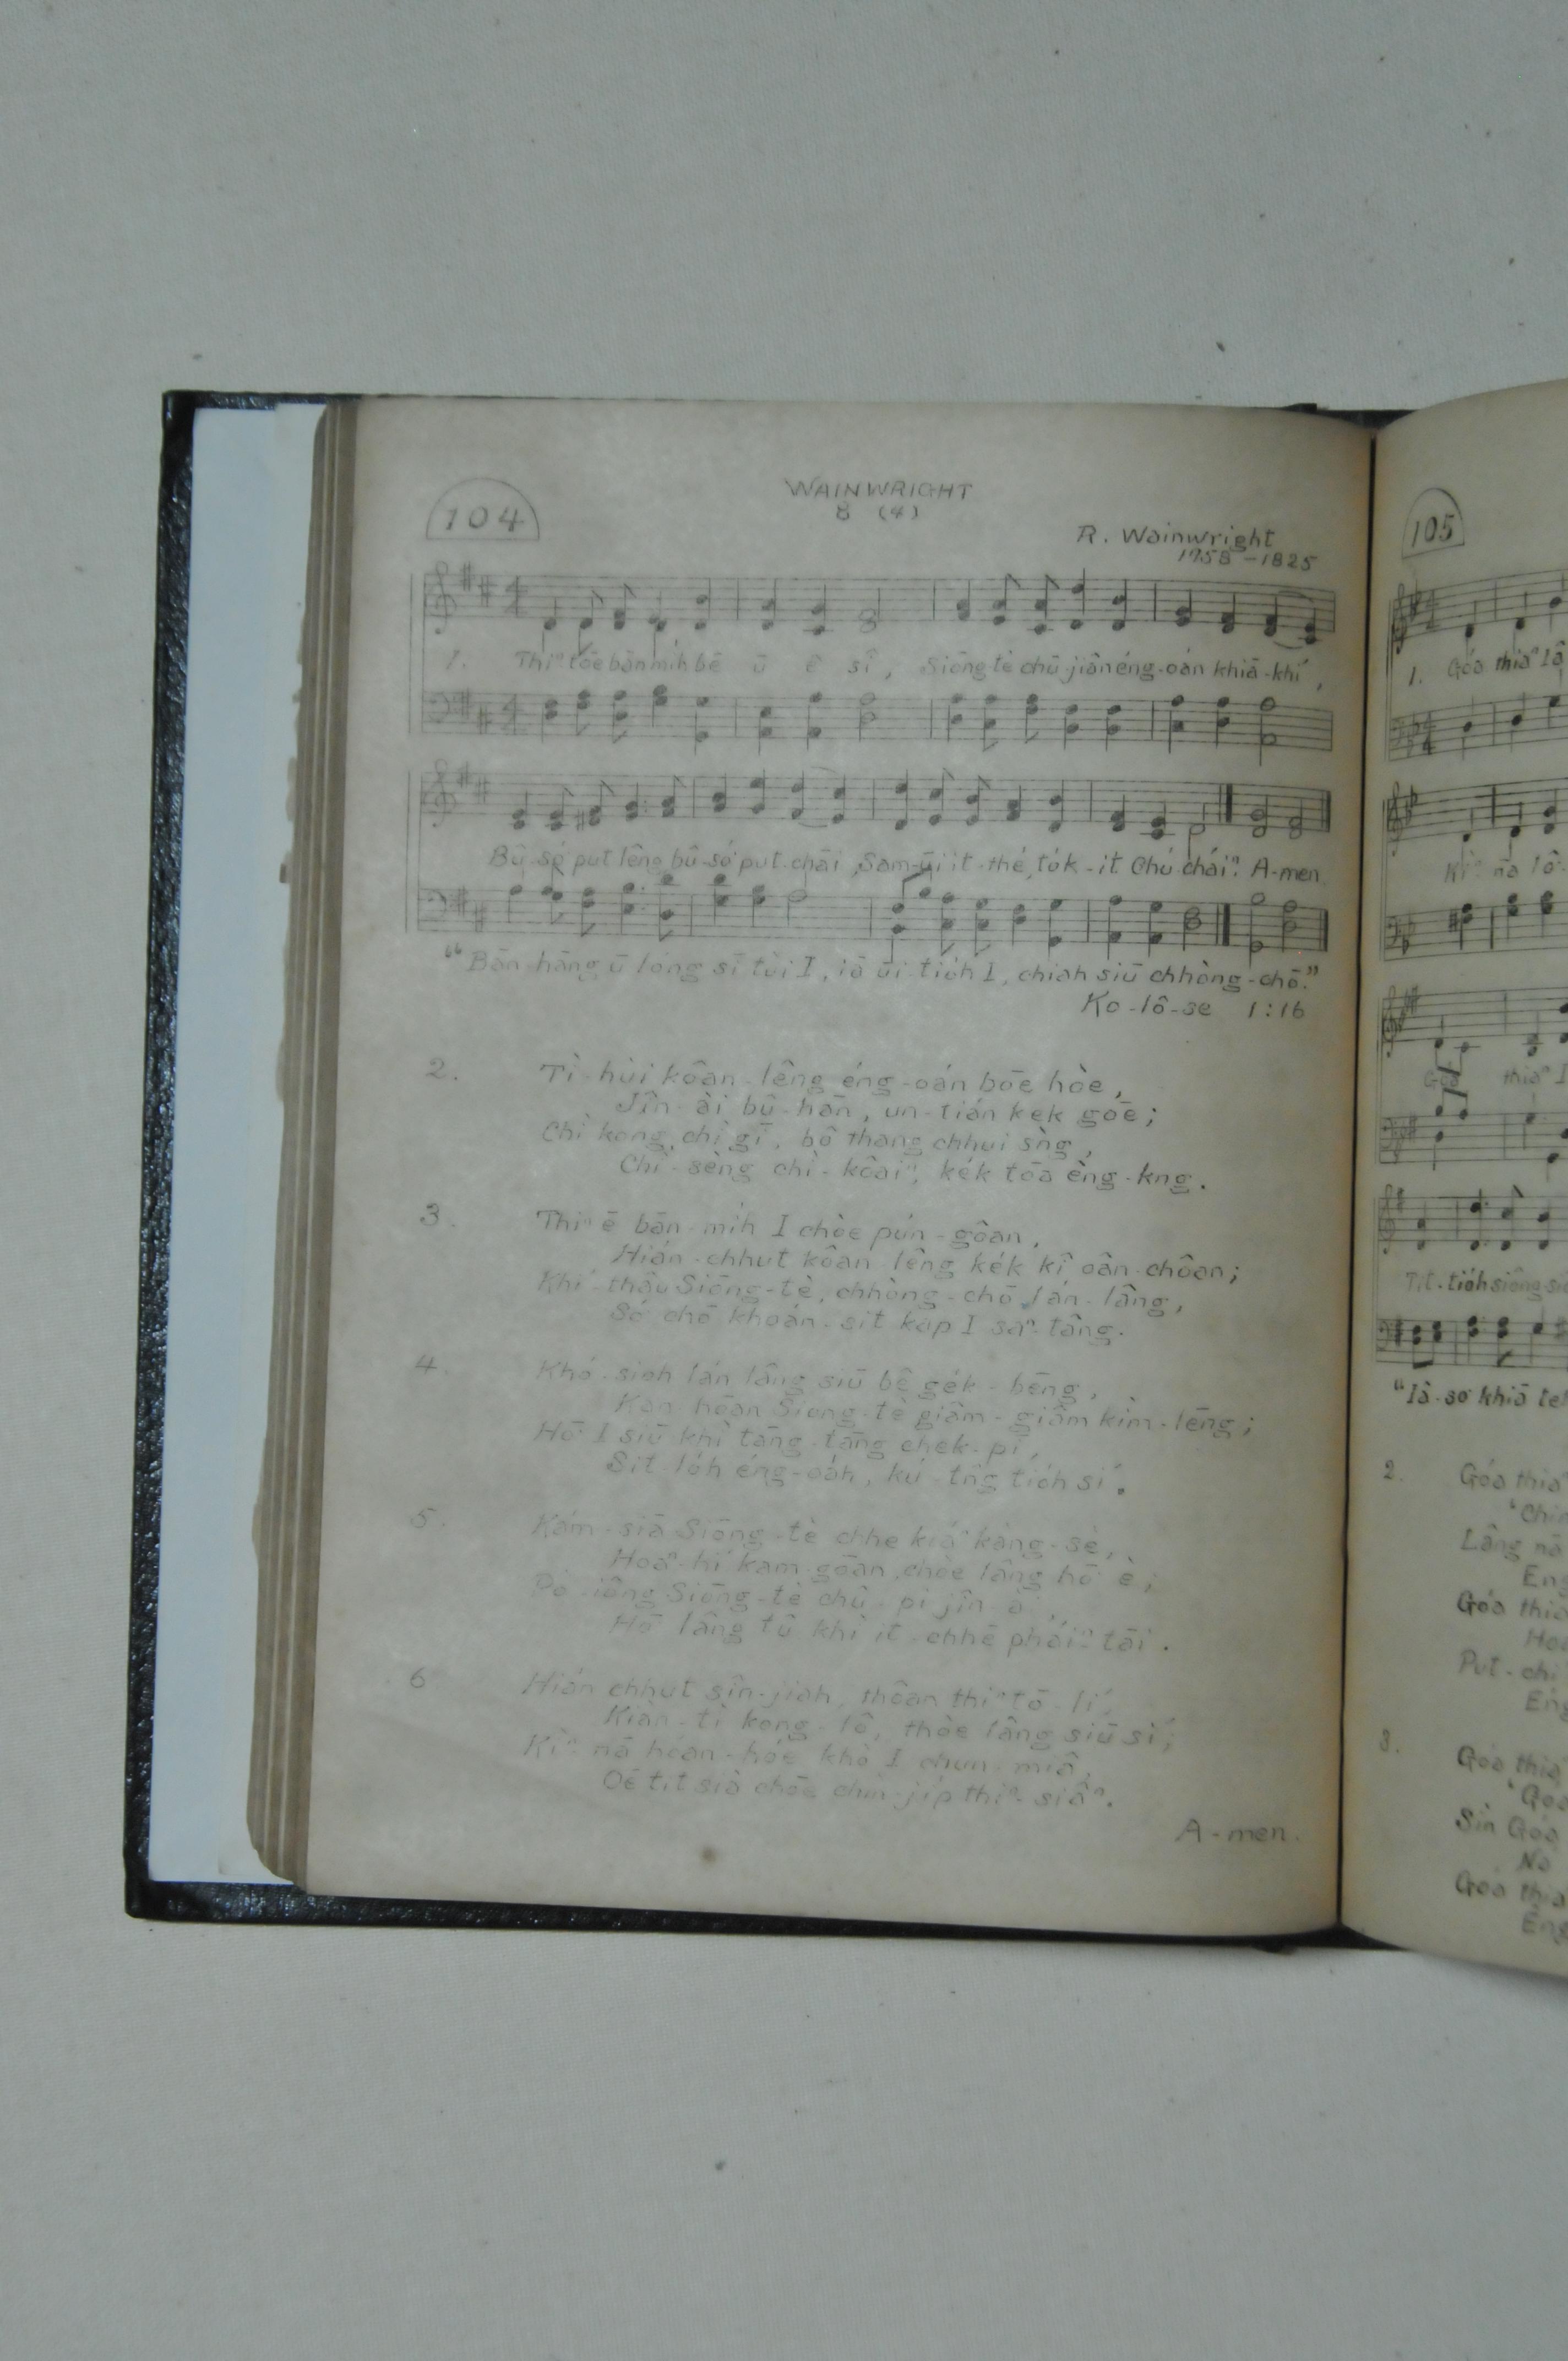 104
WAINWRIGHT
8 (4)
R. Wainwright
1758-1825
1. Thiⁿ tōe bān mi̍h bē ū ê sî, Siōng-tè chū-jiân éng-oán khiā-khí,
Bû-só͘ put lêng, bû-só͘ put-chāi, Sam-ūi it-thé, to̍k-it Chú-cháiⁿ. A-men.
"Bān-hāng ū lóng sī tùi I, iā ūi-tio̍h I, chiah siū chhòng-chō."
Ko-lô-se 1:16
2. Tì-hùi koân-lêng éng-oán bōe hòe,
Jîn-ài bû-hān, un-tián ke̍k gōe;
Chì kong, chì gī, bô thang chhui sǹg,
Chì-sèng chì-koâiⁿ, ke̍k tōa èng-kng.
3. Thiⁿ ē bān-mi̍h I chòe pún-goân,
Hián-chhut koân-lêng ke̍k kî oân-choân;
Khí-thâu Siōng-tè, chhòng-chō lán-lâng,
Só͘ chō khoán-sit kap I saⁿ-tâng.
4. Khó-sioh lán lâng siū bê ge̍k-bēng,
Kan-hōan Siōng-tè giâm-giâm kìm-lēng;
Hō͘ I siū khì tāng-tāng chek-pī,
Sit-lo̍h éng-oa̍h, kú-tn̂g tio̍h sí.
5. Kám-siā Siōng-tè chhe kiáⁿ kàng-sè,
Hoaⁿ-hí kam-goān chòe lâng hō͘ ē;
Pò-iông Siōng-tè chû-pi jîn-ài,
Hō͘ lâng tû khì it-chhè pháiⁿ tāi.
6 Hián chhut sîn-jiah, thôan thiⁿ tō-lí,
Kiàn-tì kong-lô, thòe lâng siū sí;
Kìⁿ-nā hóan-hóe khò I chun-miâ,
Oē tit sià chōe chìn-ji̍p thiⁿ-siâⁿ.
A-men.
105
1. Góa thiaⁿ Iâ
Kìⁿ-nā lô-
Góa thiaⁿ I
Tit-tio̍h siông-si
"Iâ-so͘ khiā teh
2. Góa thiaⁿ
Lâng nā
Eng
Góa thia
Put-chí
Eng
3. Góa thia
"Góa
Sìn Góa
Nā
Góa thia
Eng